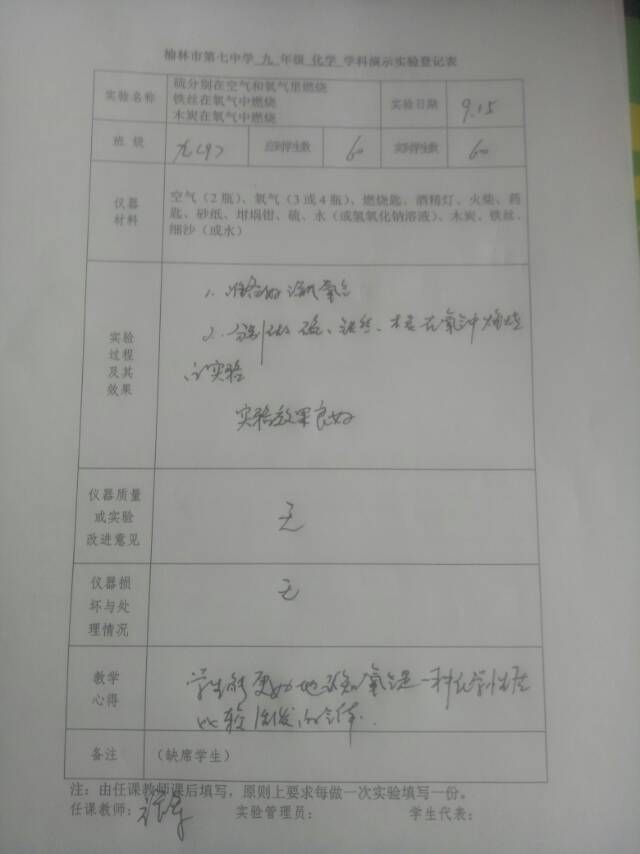 榆林市第七中学 九 年级 化学 学科演示实验登记表
实验名称
硫分别在空气和氧气里燃烧
铁丝在氧气中燃烧
木炭在氧气中燃烧
实验日期
9.15
班 级
九(9)
应到学生数
60
实到学生数
60
仪器
材料
空气（2瓶）、氧气（3或4瓶）、燃烧匙、酒精灯、火柴、药
匙、砂纸、坩埚钳、硫、水（或氢氧化钠溶液）、木炭、铁丝、
细沙（或水）
实验
过程
及其
效果
1. 准备好 氧气
2. 分别做硫、铁丝、木炭在氧气中燃烧
的实验
实验效果良好
仪器质量
或实验
改进意见
无
仪器损
坏与处
理情况
无
教学
心得
学生能更好地 氧气是一种化学性质
比较活泼的气体.
备注
（缺席学生）
注：由任课教师课后填写，原则上要求每做一次实验填写一份。
任课教师： 实验管理员： 学生代表：